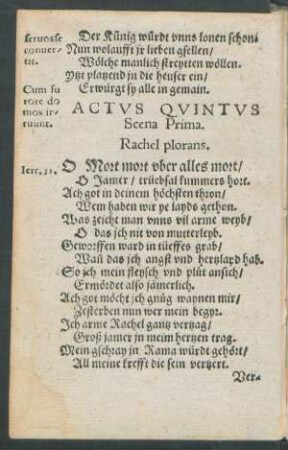 seruosse
conuer-
tit.
Der Künig würdt vnns lonen schon.
Nun wolaufft jr lieben gsellen/
Wölche manlich streytten wöllen.
Yetz platzend jn die heuser ein/
Erwürgt sy alle in gemain.
Cum fu
rore do
mos ir-
ruunt.
ACTVS QVINTVS
Scena Prima.
Rachel plorans.
Iere. 31.
O Mort mort vber alles mort/
O Jamer/ trüebsal kummers hort.
Ach got in deinem höchsten thron/
Wem haben wir ye layds gethon.
Was zeicht man vnns vil arme weyb/
O das jch nit von mutterleyb.
Geworffen ward in tüeffes grab/
Wañ das jch angst vnd hertzlayd hab.
So jch mein fleysch vnd plüt ansich/
Ermördet also jämerlich.
Ach got möcht jch gnüg waynen mir/
Zesterben nun wer mein begyr.
Ich arme Rachel gantz vertzag/
Groß jamer jn meim hertzen trag.
Mein gschray jn Rama würdt gehört/
All meine krefft die sein vertzert.
Ver-